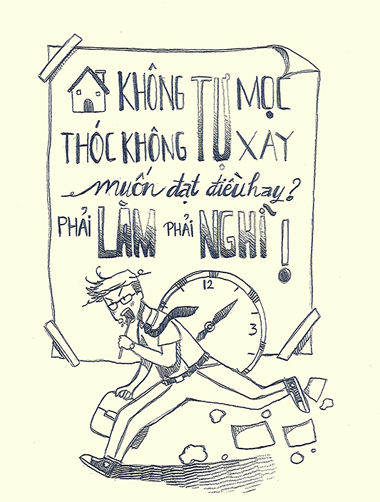 KHÔNG TỰ MỌC
THÓC KHÔNG TỰ XAY
muốn đạt điều hay?
PHẢI LÀM PHẢI NGHĨ!
12
3